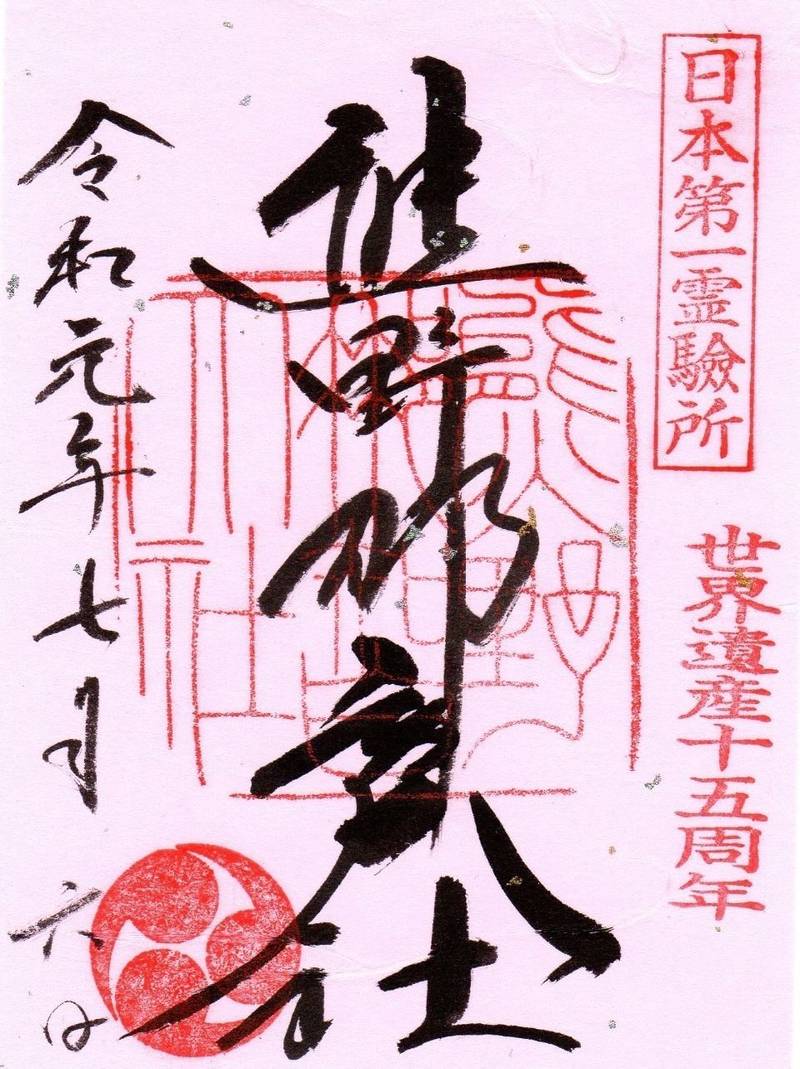 日本第一霊驗所
世界遺産十五周年
熊野那智大社
令和元年七月六日